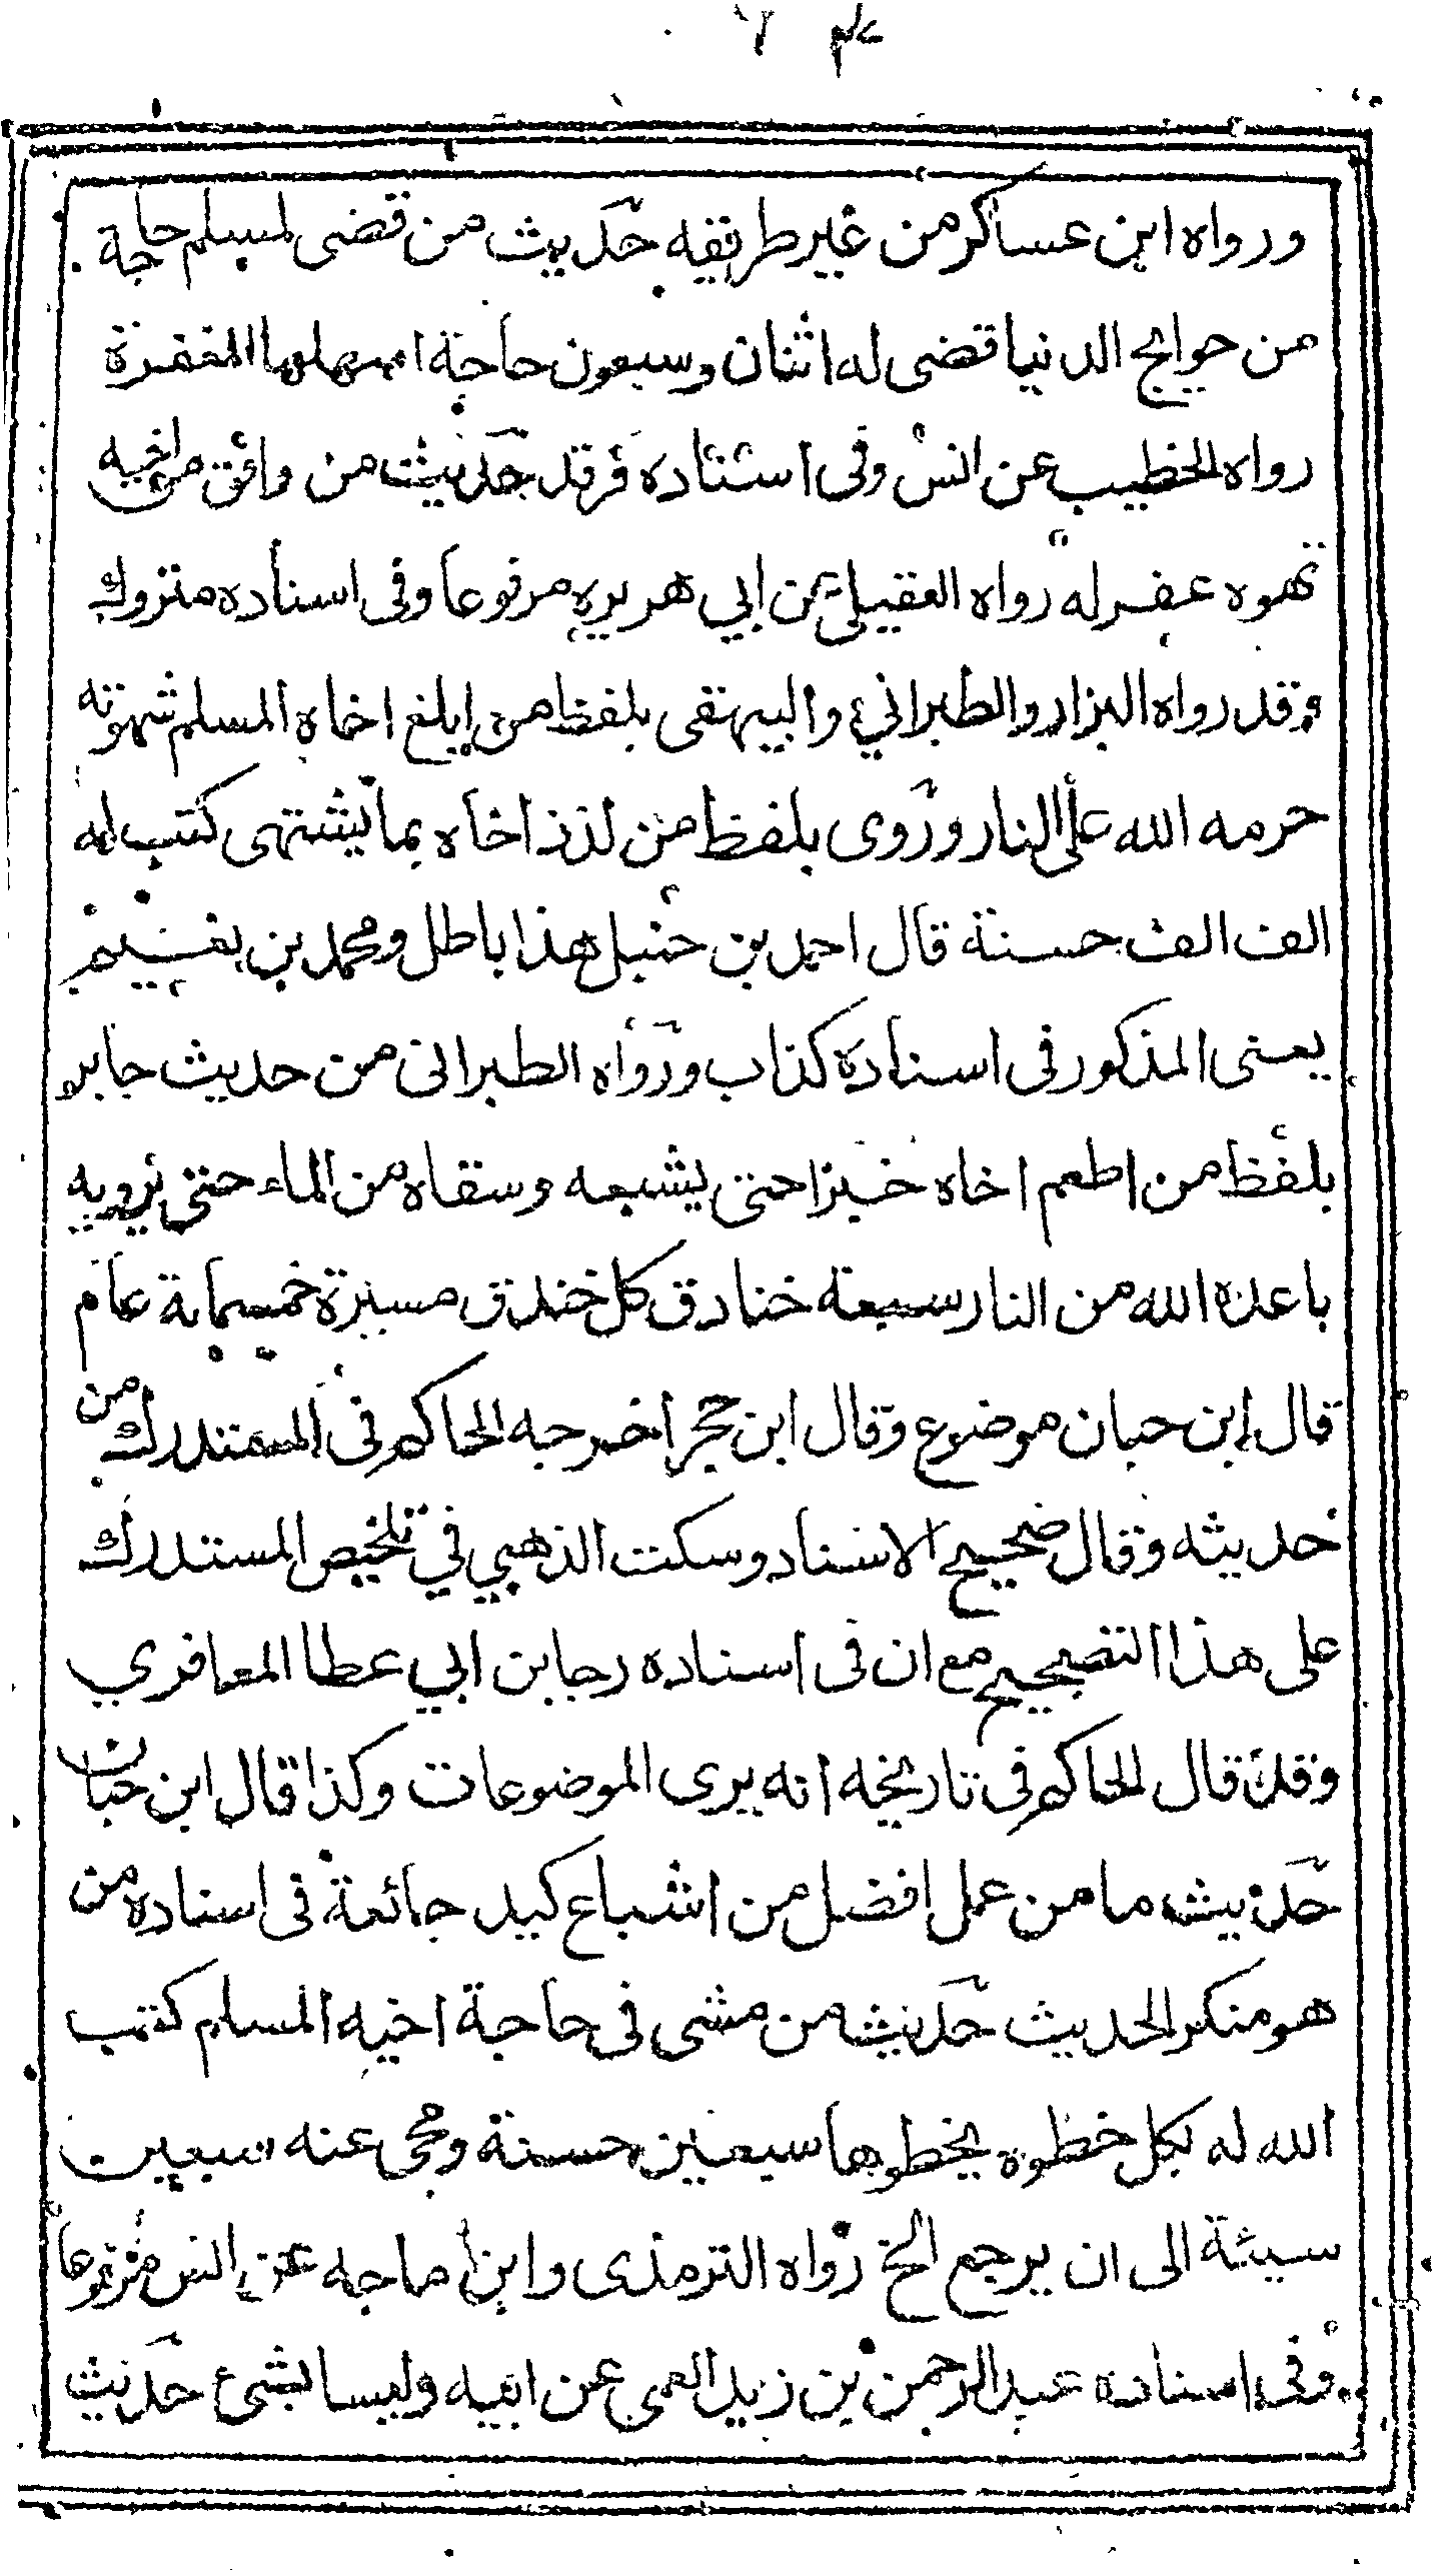 ورواه ابن عساكر من غير طريقه حديث من قضى لمسلم حاجة
من حوايج الدنيا قضى له اثنان وسبعون حاجة اسهلها المغفرة
رواه الخطيب عن انس وفى اسناده فرقد حديث من وافق من اخيه
شهوه غفر له رواه العقيلى عن ابي هريره مرفوعا وفى اسناده متروك
وقد رواه البزار والطبراني والبيهقى بلفظ من ابلغ اخاه المسلم شهوته
حرمه الله على النار وروى بلفظ من لذذ اخاه بما يشتهى كتب له
الف الف حسنة قال احمد بن حنبل هذا باطل ومحمد بن نعيم
يعنى المذكور فى اسناده كذاب ورواه الطبرانى من حديث جابر
بلفظ من اطعم اخاه خبزا حتى يشبعه وسقاه من الماء حتى يرويه
باعده الله من النار سبعة خنادق كل خندق مسيرة خمسماية عام
قال ابن حبان موضوع وقال ابن حجر اخرجه الحاكم فى المستدرك من
حديثه وقال صحيح الاسناد وسكت الذهبي في تلخيص المستدرك
على هذا التصحيح مع ان فى اسناده رجا بن ابي عطا المعافري
وقد قال الحاكم فى تاريخه انه يروى الموضوعات وكذا قال ابن حبان
حديث ما من عمل افضل من اشباع كبد جائعة فى اسناده من
هو منكر الحديث حديث من مشى فى حاجة اخيه المسلم كتب
الله له بكل خطوه يخطوها سبعين حسنة ومحى عنه سبعين
سيئة الى ان يرجع الخ رواه الترمذى وابن ماجه عن انس مرفوعا
وفى اسناده عبد الرحمن بن زيد العمى عن ابيه وليسا بشئ حديث